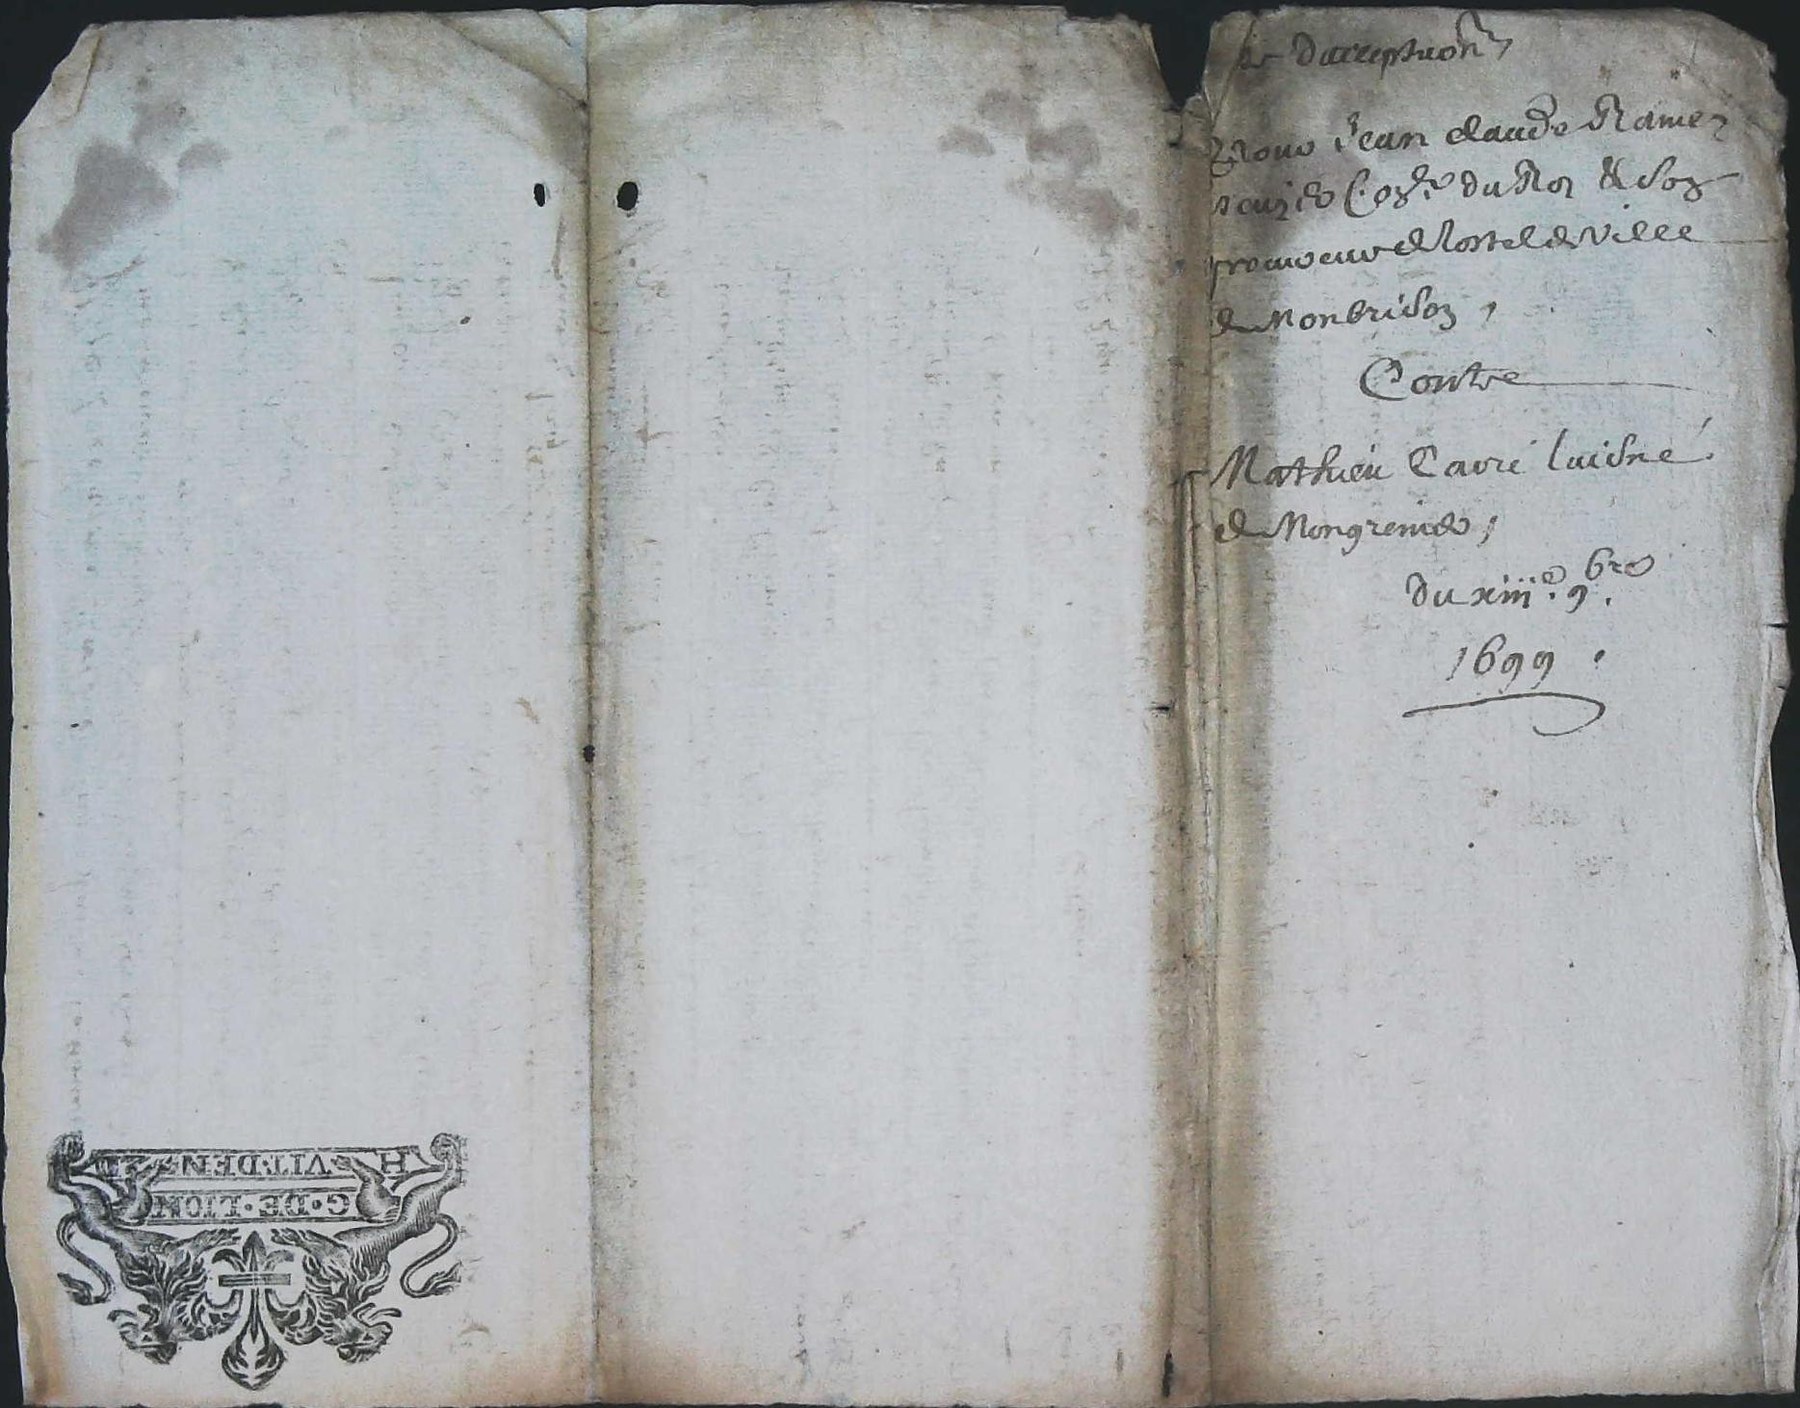 Dacception
Pour Jean Claude Ramey
Con.er du Roy & son
procureur de lostel de ville
de Monbrison,
Contre
Mathieu Cavré laisné
de Mongrenier,
Du xiiie. 9bre.
1699.
H VIT·DEN
G·DE·LION